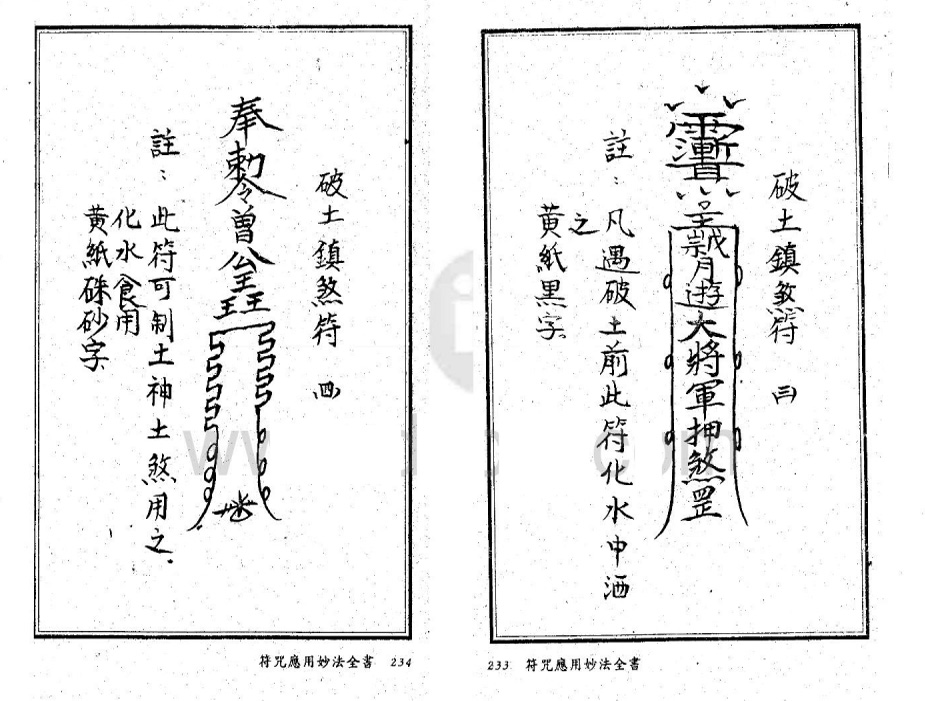 破土鎮煞符 (三)
大將軍押煞罡
註：凡遇破土前此符化水中洒
之
黃紙黑字
233 符咒應用妙法全書
破土鎮煞符 (四)
奉
勅令
曾公
註：此符可制土神土煞用之.
化水食用
黃紙硃砂字
符咒應用妙法全書 234